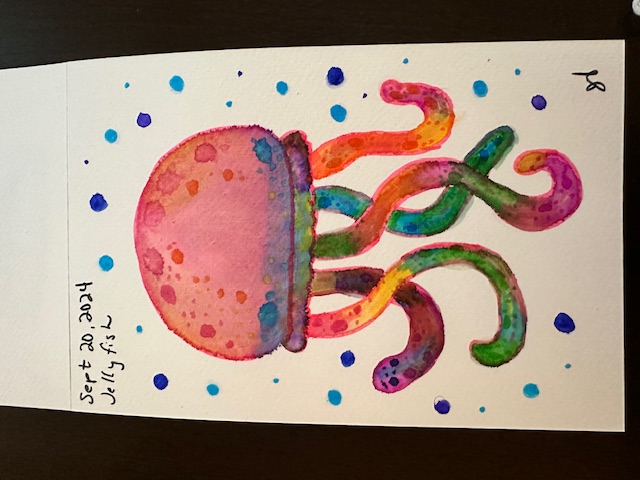 Sept 20, 2024
Jelly fish